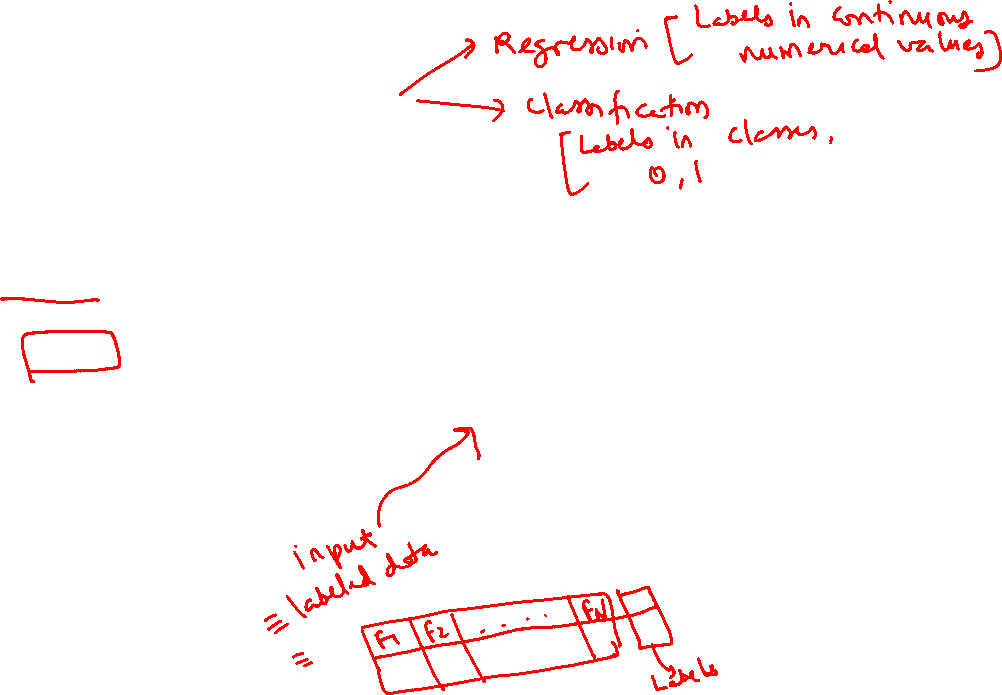 Regression [Labels in continuous
numerical values]
Classification
[Labels in classes,
0, 1
input
labeled data
F1 F2 . . . . FN
Labels